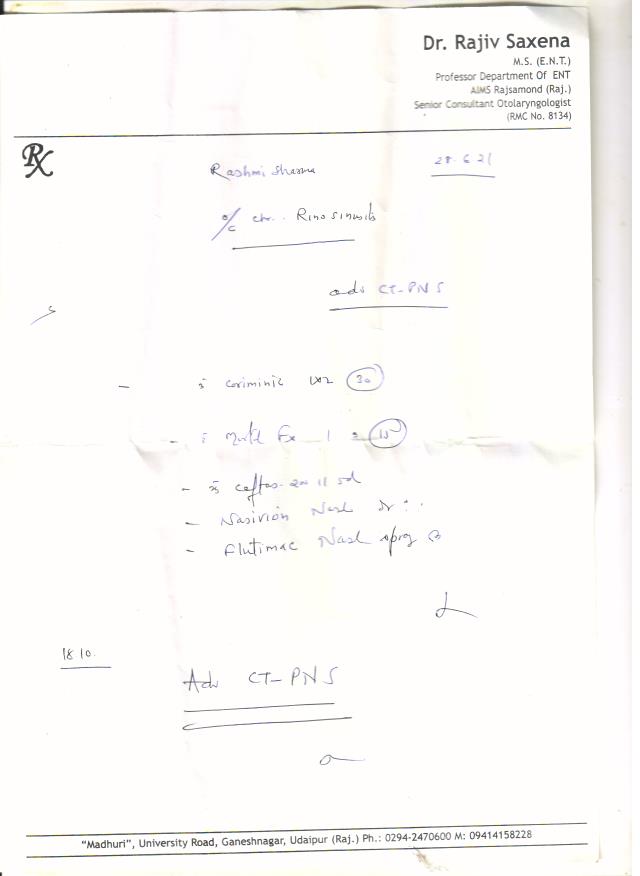 Dr. Rajiv Saxena
M.S. (E.N.T.)
Professor Department Of ENT
AIMS Rajsamond (Raj.)
Senior Consultant Otolaryngologist
(RMC No. 8134)
Rx
Rashmi Sharma 28.6.21
o/c chr. Rinosinusitis
adv CT-PNS
Coriminic 30
1 15
ceftas-200 11 5d
Nasivion Nasl dr
Flutimac Nasl spray
18.10.
Adv CT-PNS
"Madhuri", University Road, Ganeshnagar, Udaipur (Raj.) Ph.: 0294-2470600 M: 09414158228